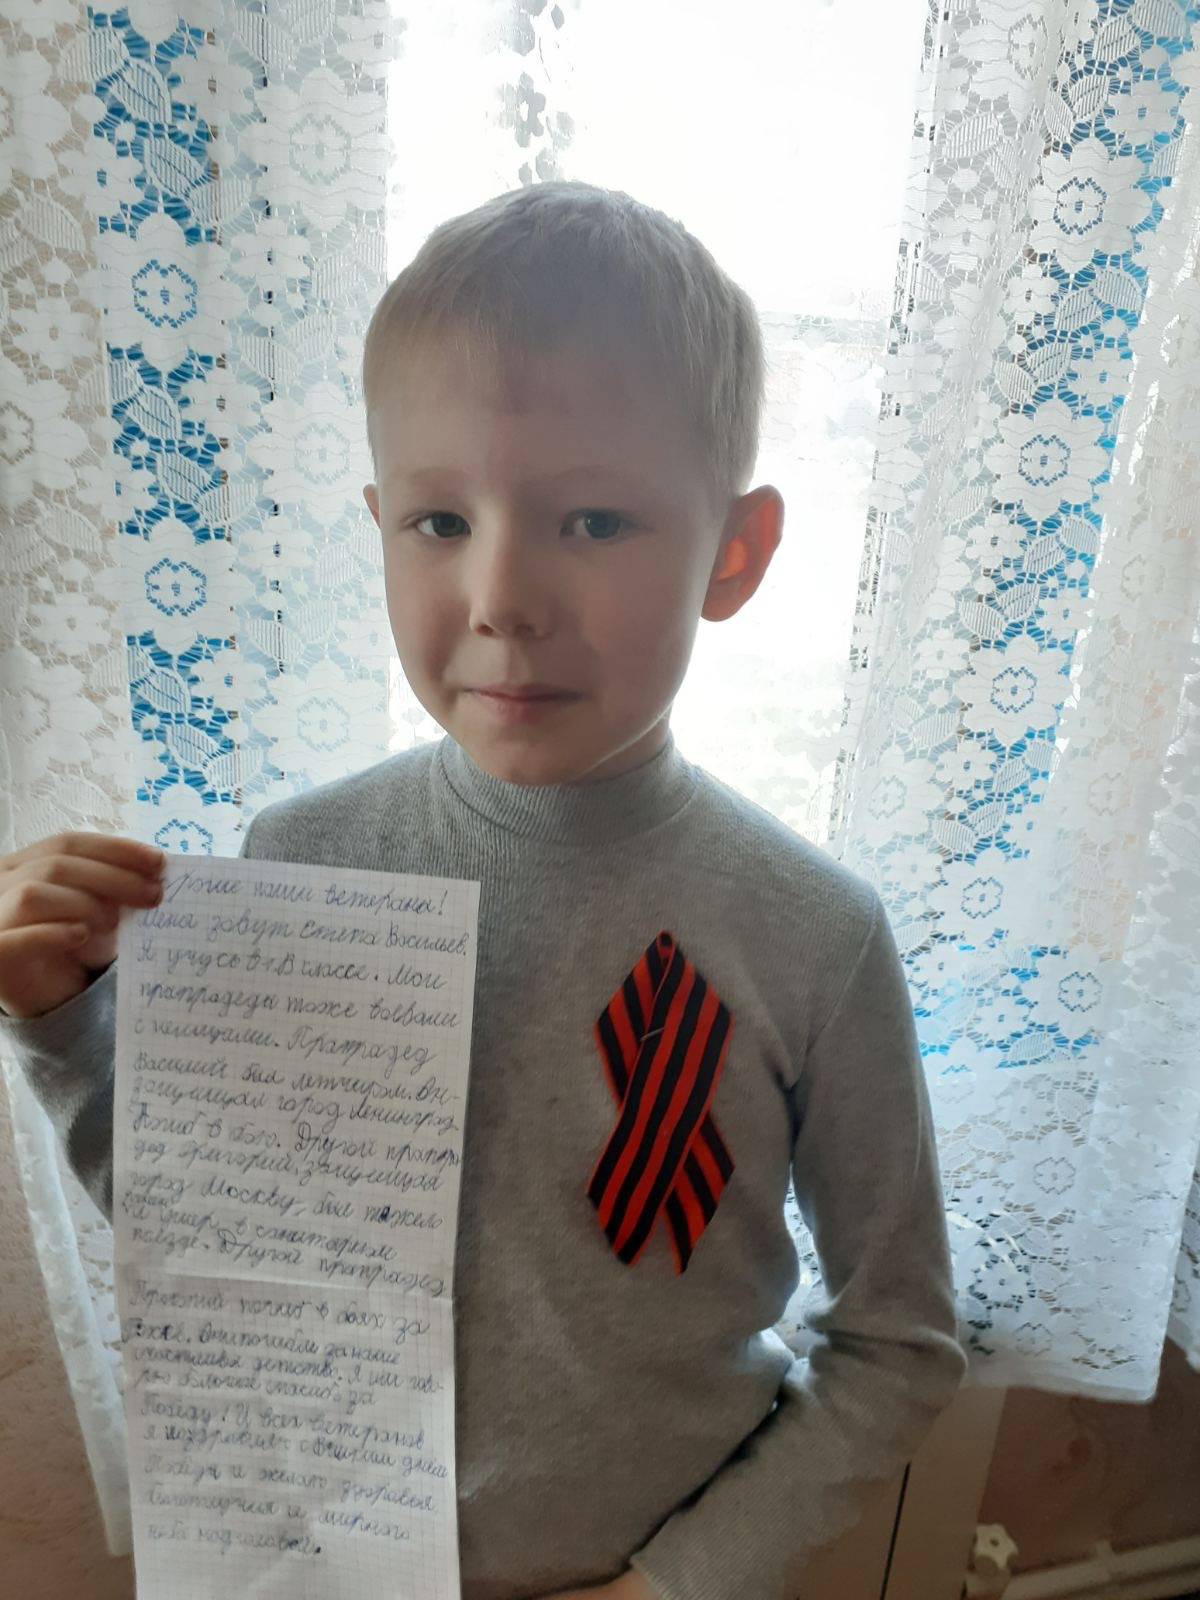 наши ветераны!
Меня зовут Степа Васильев.
Я учусь в 1 В классе. Мои
прапрадеды тоже воевали
с немцами. Прапрадед
Василий был летчиком. Он
защищал город Ленинград.
Погиб в бою. Другой прапра-
дед Григорий, защищая
город Москву, был тяжело
ранен
и умер в санитарном
поезде. Другой прапрадед
погиб в боях за
Они погибли за наше
детство. Я им гово-
рю большое спасибо за
Победу! И всех ветеранов
я поздравляю с днём
Победы и желаю здоровья,
и мирного
неба над головой.